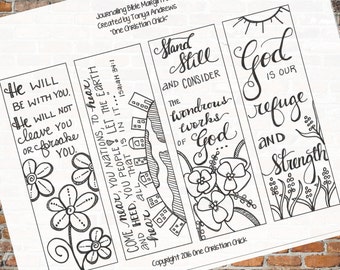 Journaling Bible Margin
Created by Tonya Andrews
"One Christian Chick"
He WILL
BE WITH YOU.
He WILL NOT
leave YOU
OR forsake
YOU.
COME near YOU NATIONS, TO hear
AND heed, YOU PEOPLE! LET THE EARTH
hear AND ALL THAT IS IN IT...
ISAIAH 34:1
Stand
Still
AND CONSIDER
THE
wondrous
works
OF
God...
God
IS OUR
refuge
AND
Strength
Copyright 2016 One Christian Chick